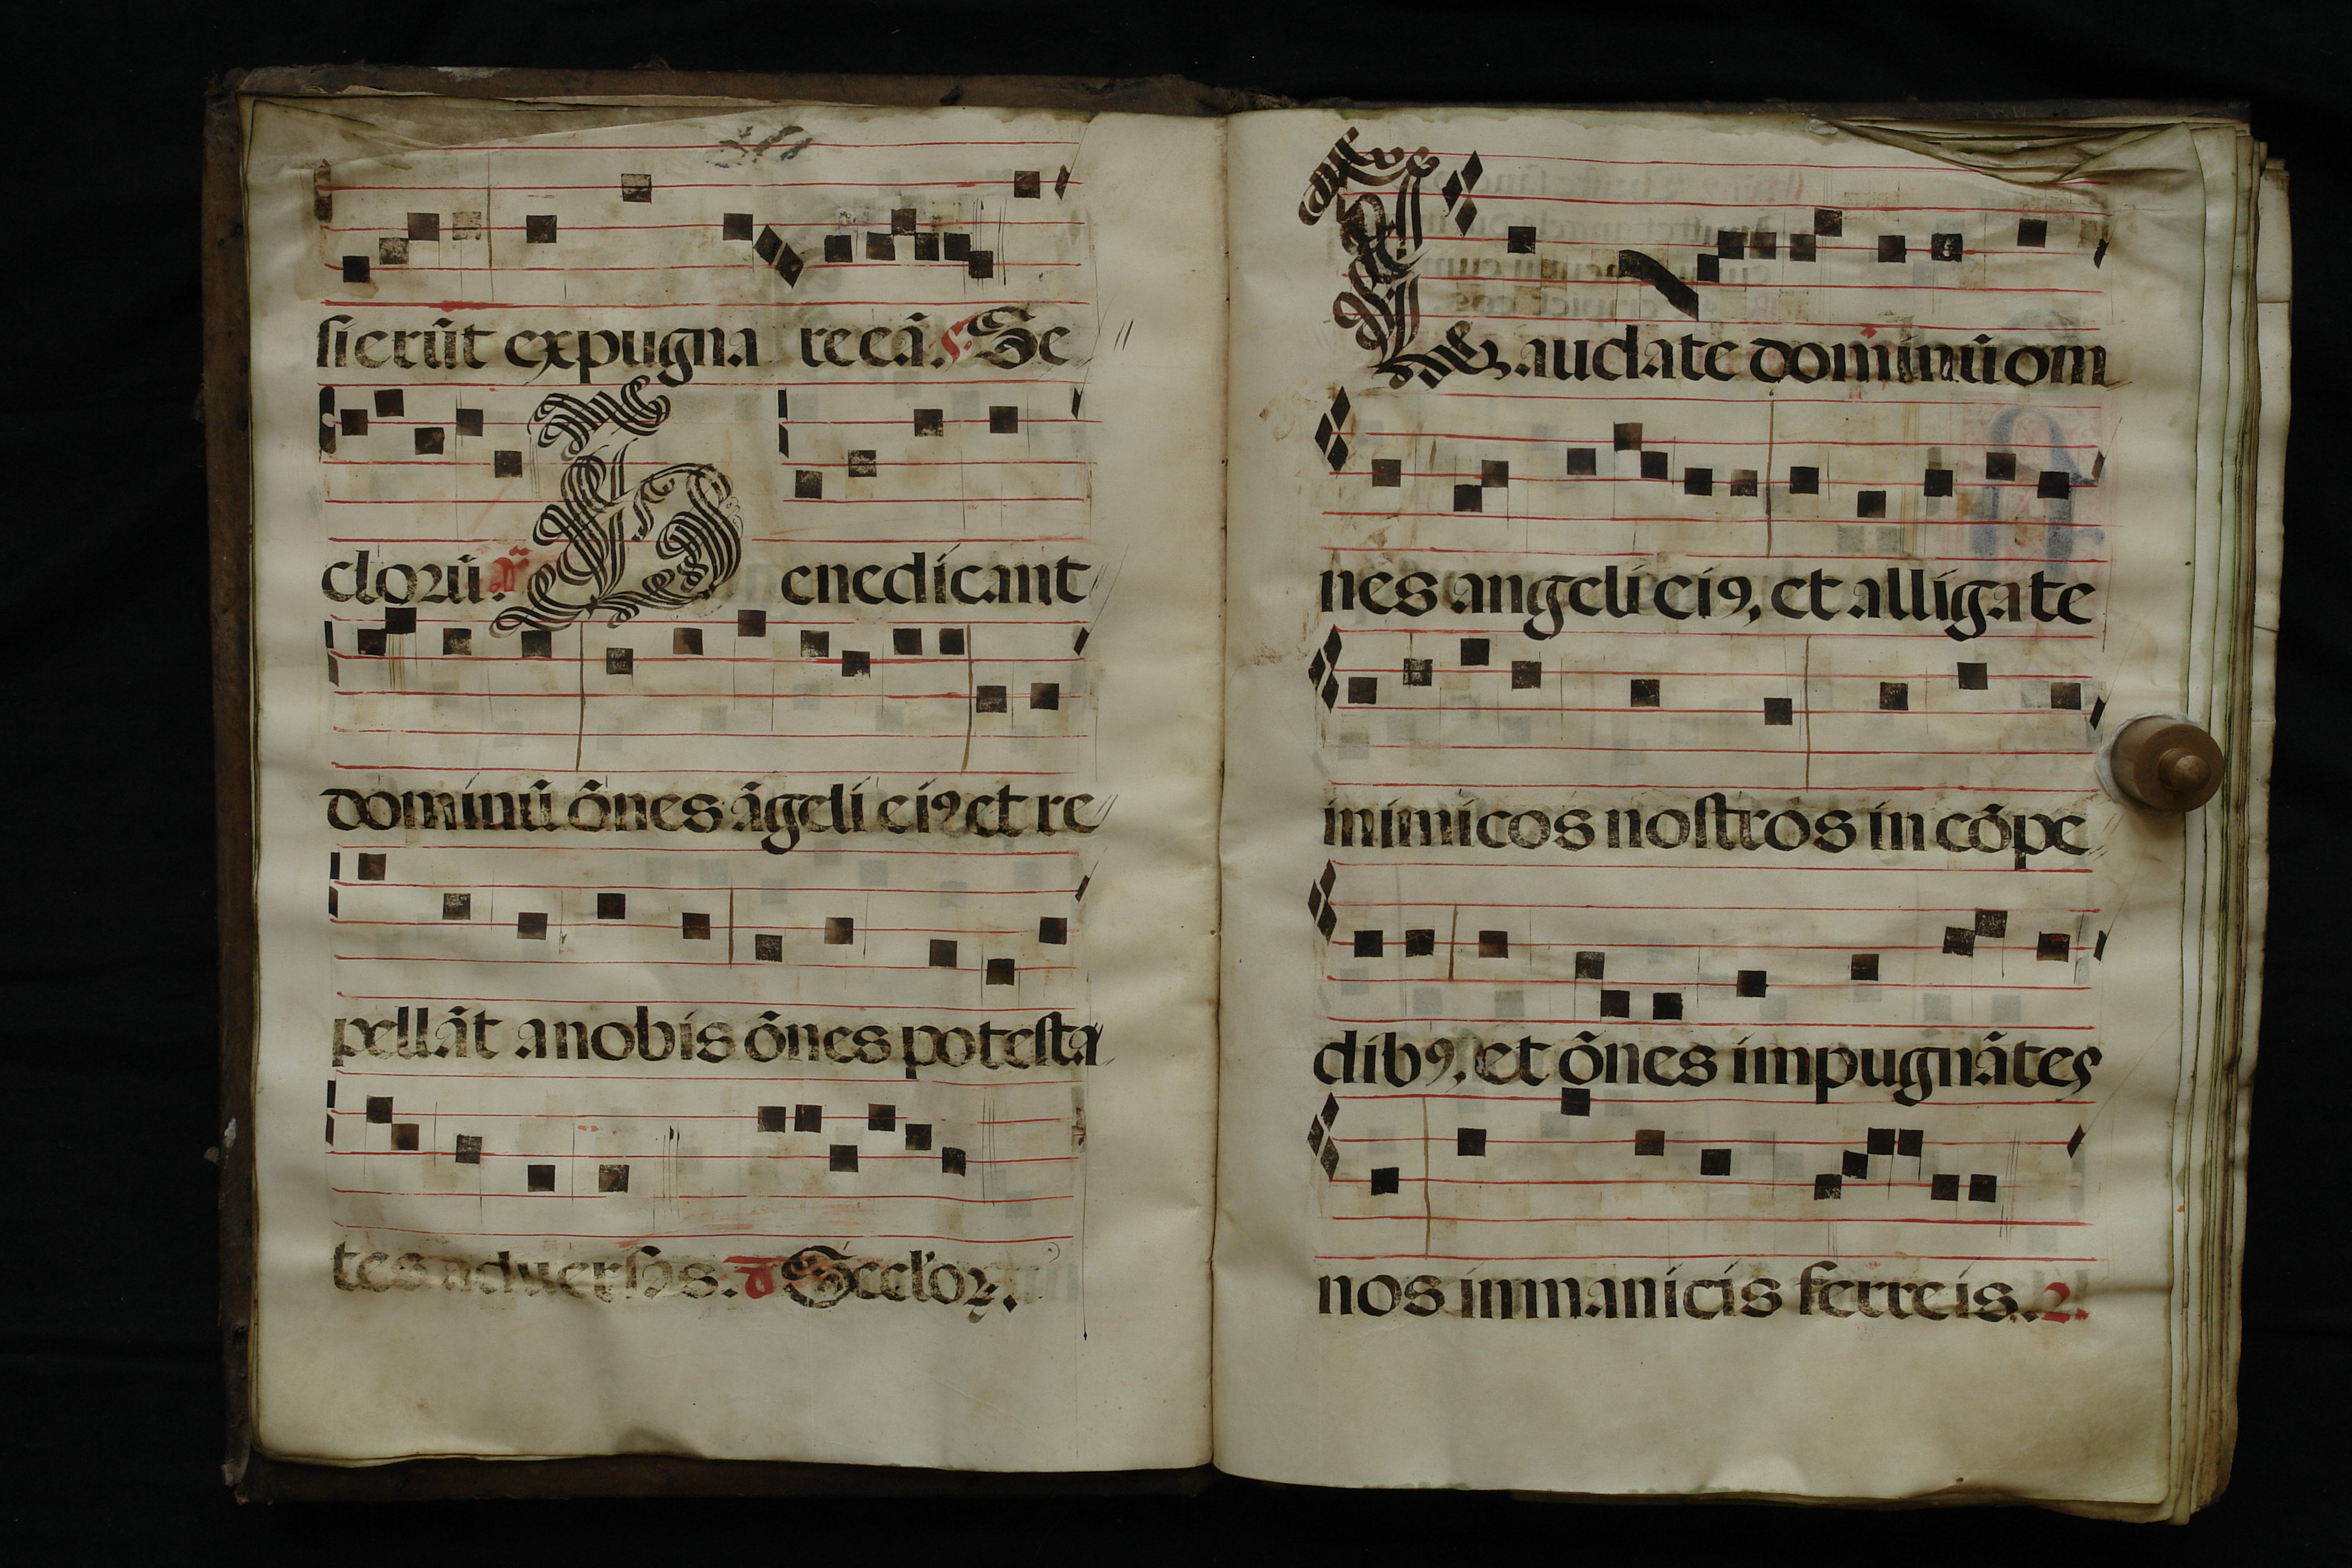 sierūt expugna re eā. Se
cloꝛū. Benedicant
dominū ōnes āgeli eiꝰ et re
pellāt a nobis ōnes potesta
tes aduersas. Secloꝝ.
Laudate dominū om
nes angeli eiꝰ, et alligate
inimicos nostros in cōpe
dibꝰ, et ōnes impugnātes
nos in manicis ferreis. 2.